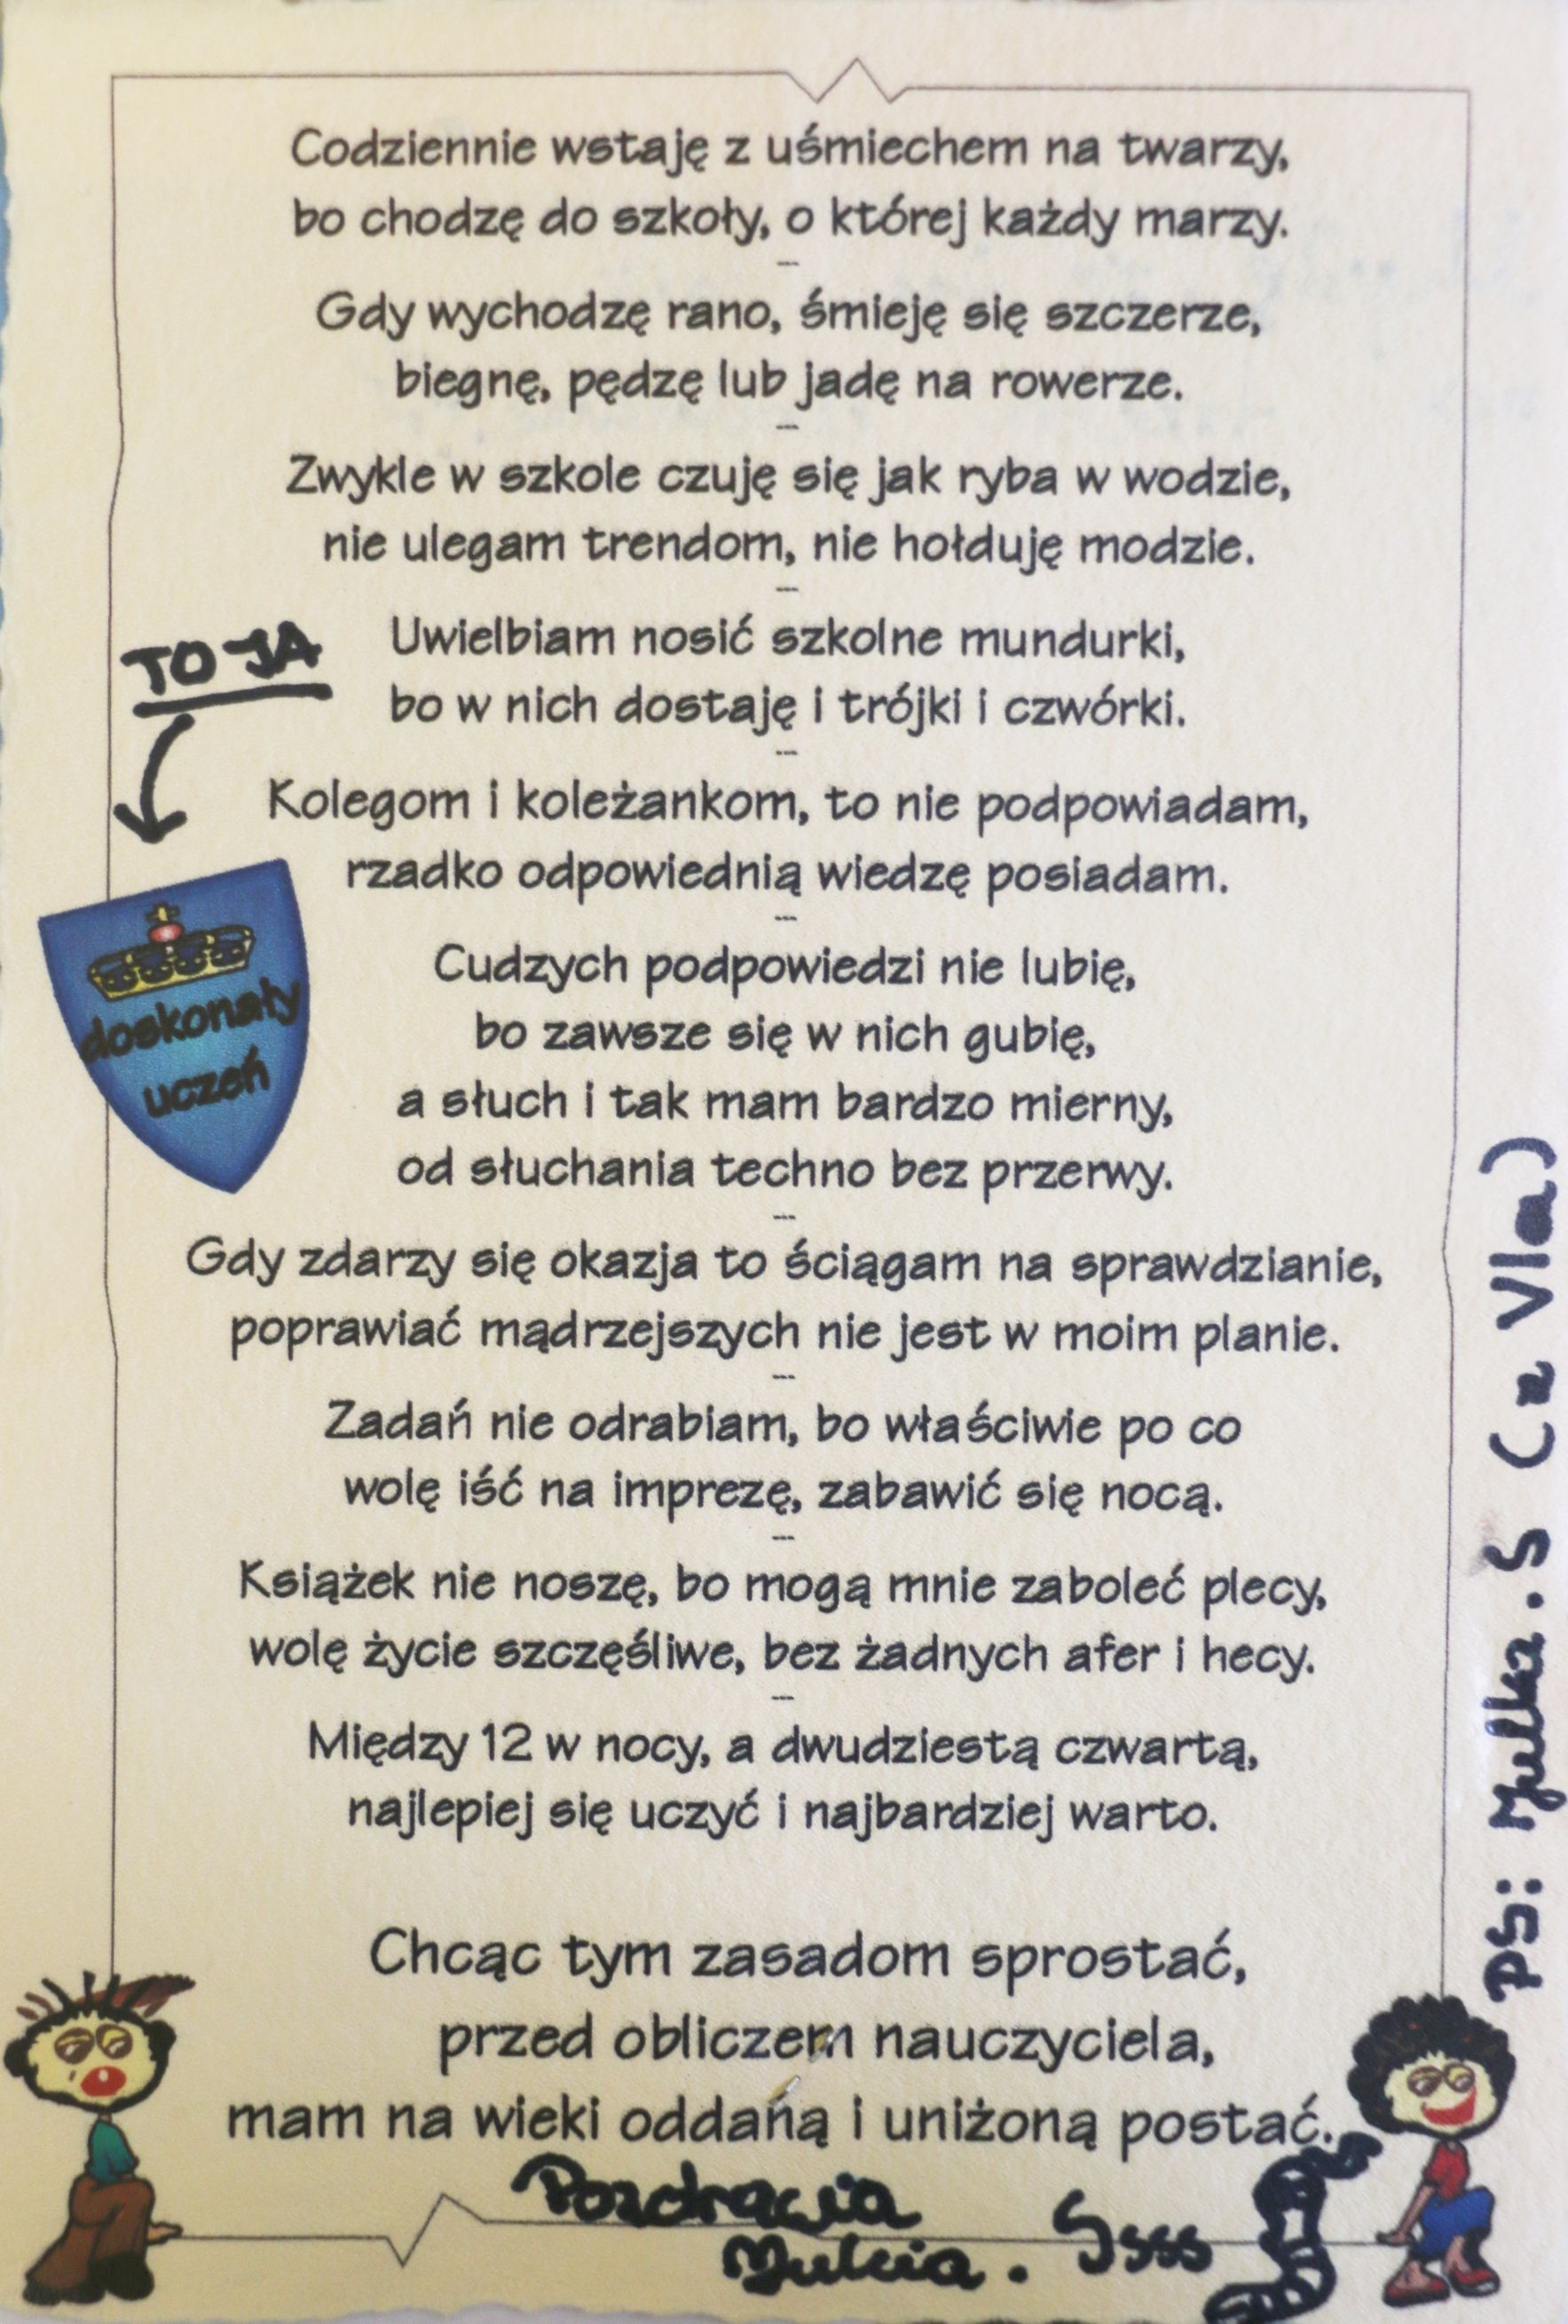 Codziennie wstaję z uśmiechem na twarzy,
bo chodzę do szkoły, o której każdy marzy.
---
Gdy wychodzę rano, śmieję się szczerze,
biegnę, pędzę lub jadę na rowerze.
---
Zwykle w szkole czuję się jak ryba w wodzie,
nie ulegam trendom, nie hołduję modzie.
---
TO JA
Uwielbiam nosić szkolne mundurki,
bo w nich dostaję i trójki i czwórki.
---
Kolegom i koleżankom, to nie podpowiadam,
rzadko odpowiednią wiedzę posiadam.
---
doskonały
uczeń
Cudzych podpowiedzi nie lubię,
bo zawsze się w nich gubię,
a słuch i tak mam bardzo mierny,
od słuchania techno bez przerwy.
---
Gdy zdarzy się okazja to ściągam na sprawdzianie,
poprawiać mądrzejszych nie jest w moim planie.
---
Zadań nie odrabiam, bo właściwie po co
wolę iść na imprezę, zabawić się nocą.
---
Książek nie noszę, bo mogą mnie zaboleć plecy,
wolę życie szczęśliwe, bez żadnych afer i hecy.
---
Między 12 w nocy, a dwudziestą czwartą,
najlepiej się uczyć i najbardziej warto.
Chcąc tym zasadom sprostać,
przed obliczem nauczyciela,
mam na wieki oddaną i uniżoną postać.
Pozdrawia
Julcia. Ssss
PS: Julka.S (z VIa)